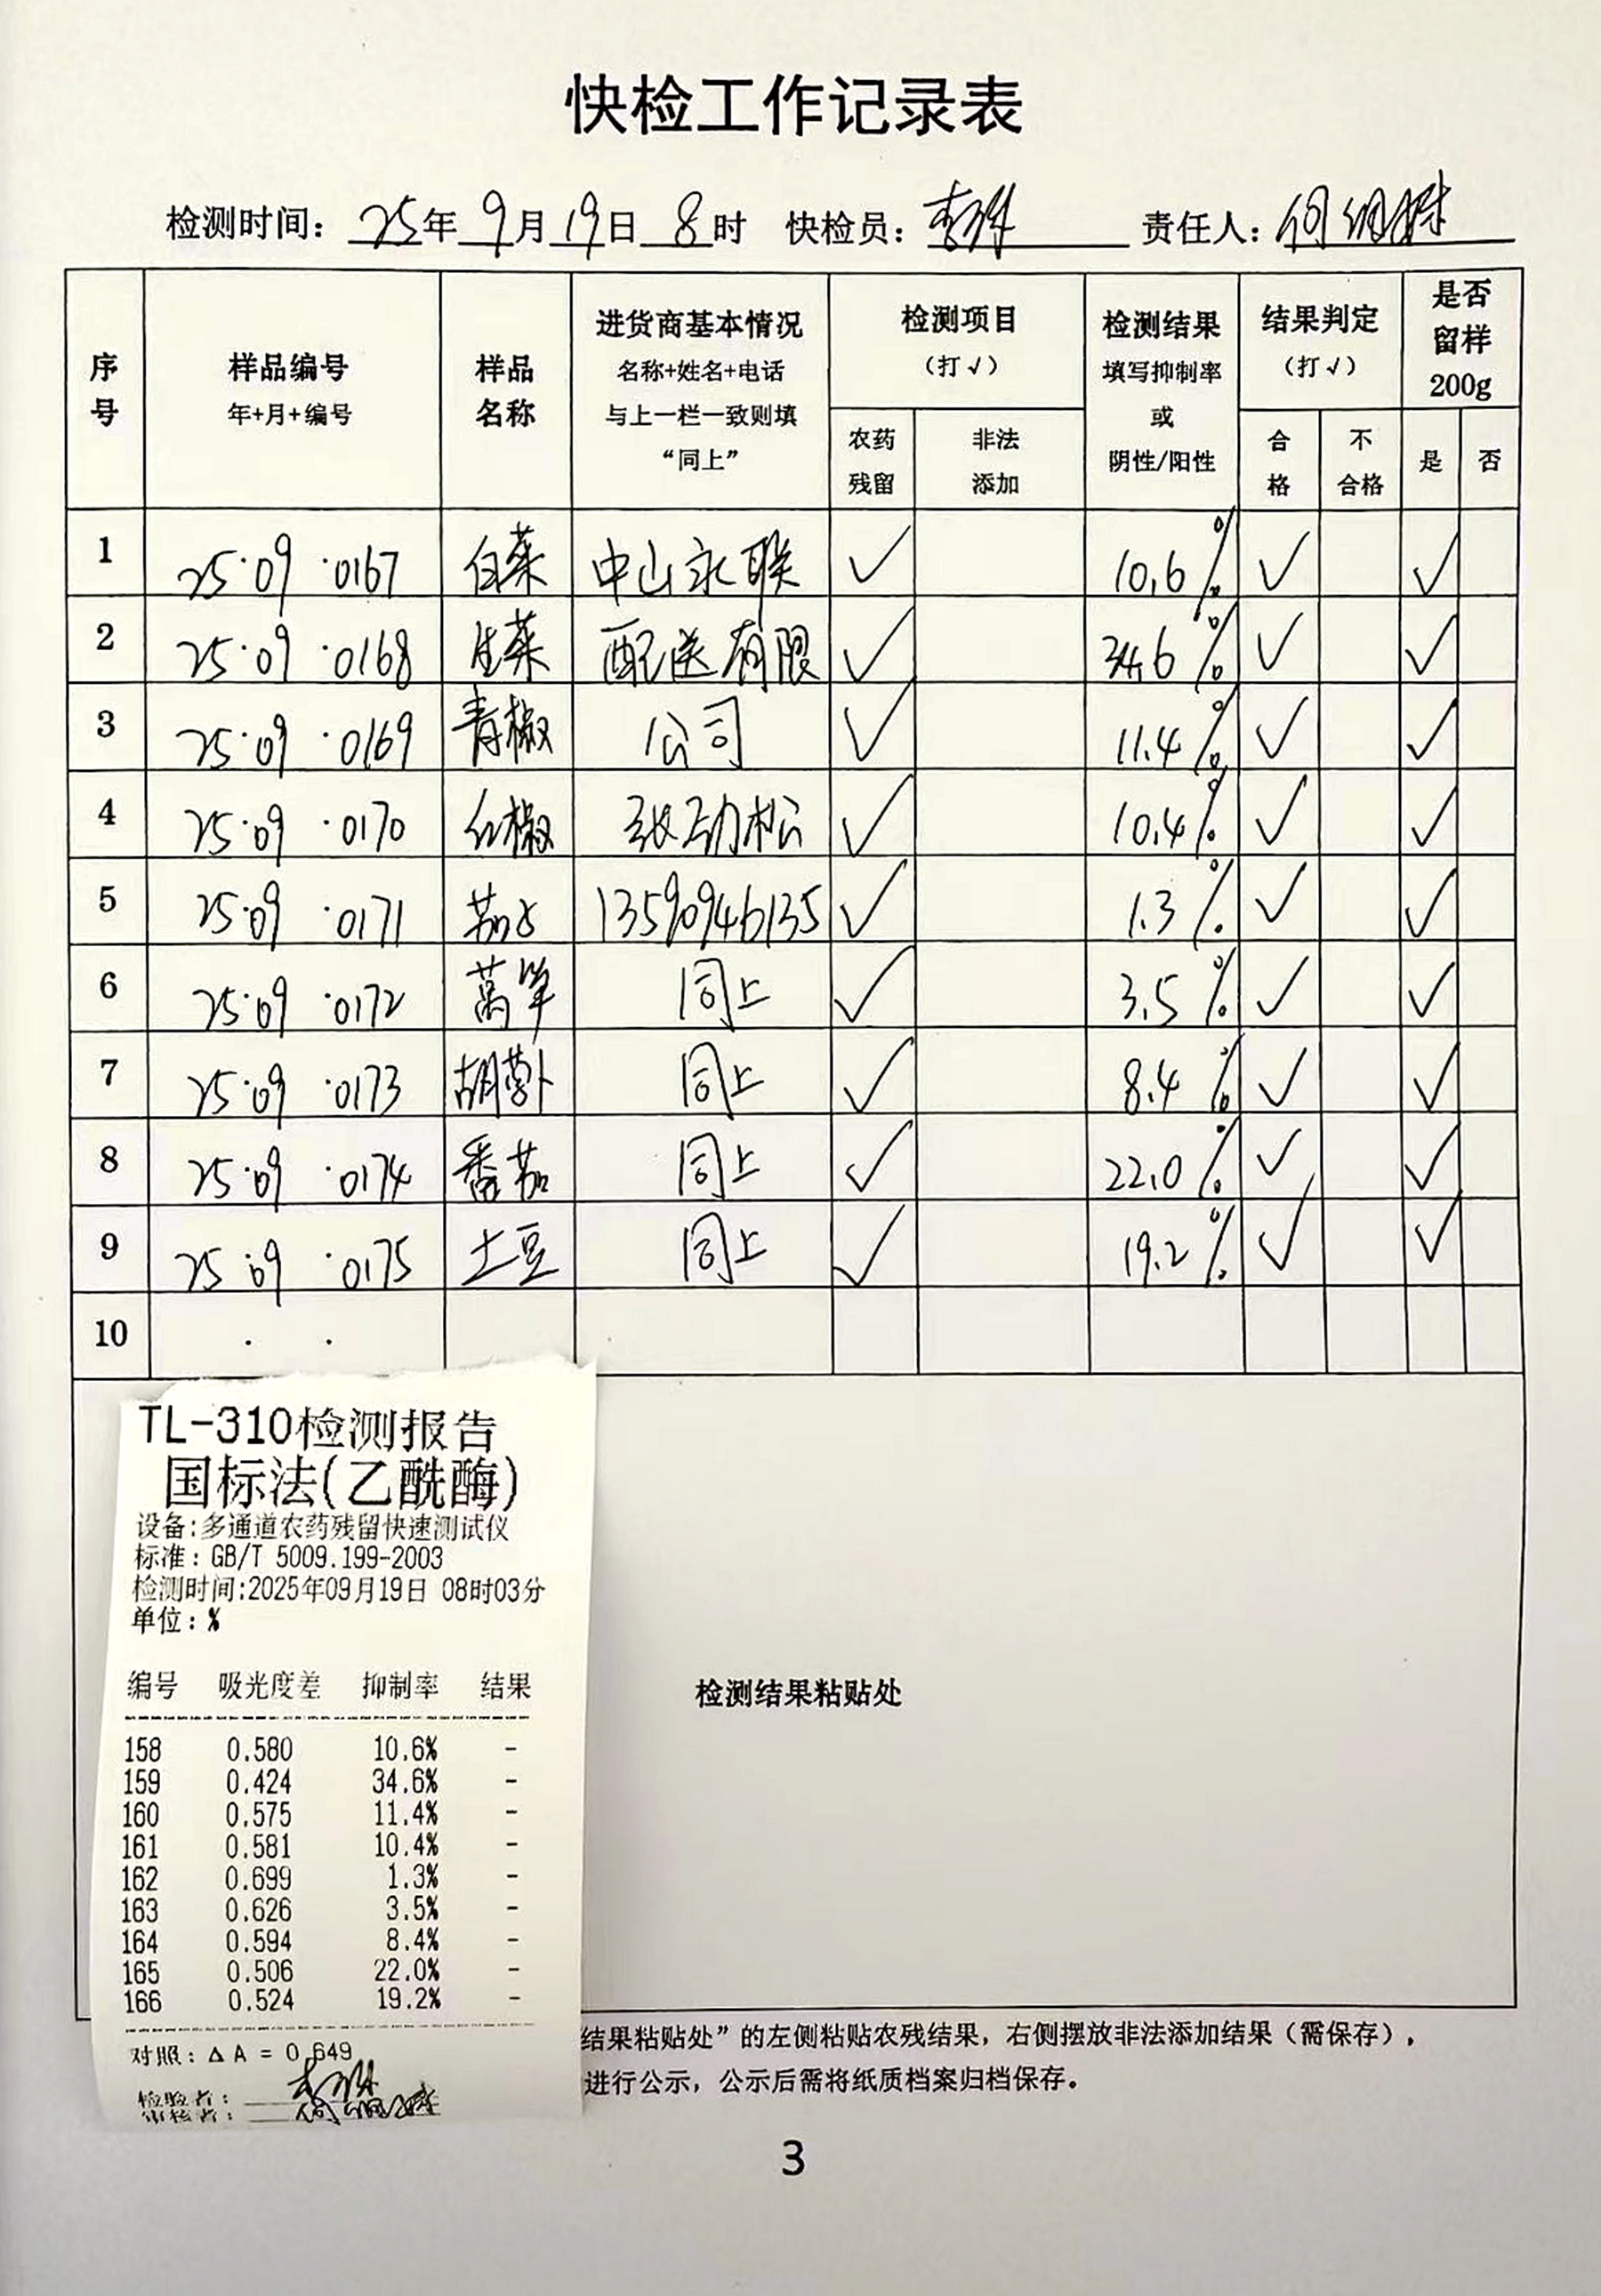 快检工作记录表
检测时间：25年9月19日8时 快检员： 责任人：何
序号 样品编号 年+月+编号 样品名称 进货商基本情况 名称+姓名+电话 与上一栏一致则填“同上” 检测项目（打√） 农药残留 非法添加 检测结果 填写抑制率或阴性/阳性 结果判定（打√） 合格 不合格 是否留样200g 是 否
1 25·09·0167 白菜 中山永联 ✓ 10.6% ✓ ✓
2 25·09·0168 生菜 配送有限 ✓ 34.6% ✓ ✓
3 25·09·0169 青椒 公司 ✓ 11.4% ✓ ✓
4 25·09·0170 红椒 张劲松 ✓ 10.4% ✓ ✓
5 25·09·0171 茄子 13590946135 ✓ 1.3% ✓ ✓
6 25·09·0172 莴笋 同上 ✓ 3.5% ✓ ✓
7 25·09·0173 胡萝卜 同上 ✓ 8.4% ✓ ✓
8 25·09·0174 番茄 同上 ✓ 22.0% ✓ ✓
9 25·09·0175 土豆 同上 ✓ 19.2% ✓ ✓
10 · ·
TL-310检测报告
国标法(乙酰酶)
设备:多通道农药残留快速测试仪
标准：GB/T 5009.199-2003
检测时间:2025年09月19日 08时03分
单位：%
编号 吸光度差 抑制率 结果
158 0.580 10.6% -
159 0.424 34.6% -
160 0.575 11.4% -
161 0.581 10.4% -
162 0.699 1.3% -
163 0.626 3.5% -
164 0.594 8.4% -
165 0.506 22.0% -
166 0.524 19.2% -
对照：ΔA = 0.649
检验者：
审核者：
检测结果粘贴处
结果粘贴处”的左侧粘贴农残结果，右侧摆放非法添加结果（需保存），
进行公示，公示后需将纸质档案归档保存。
3